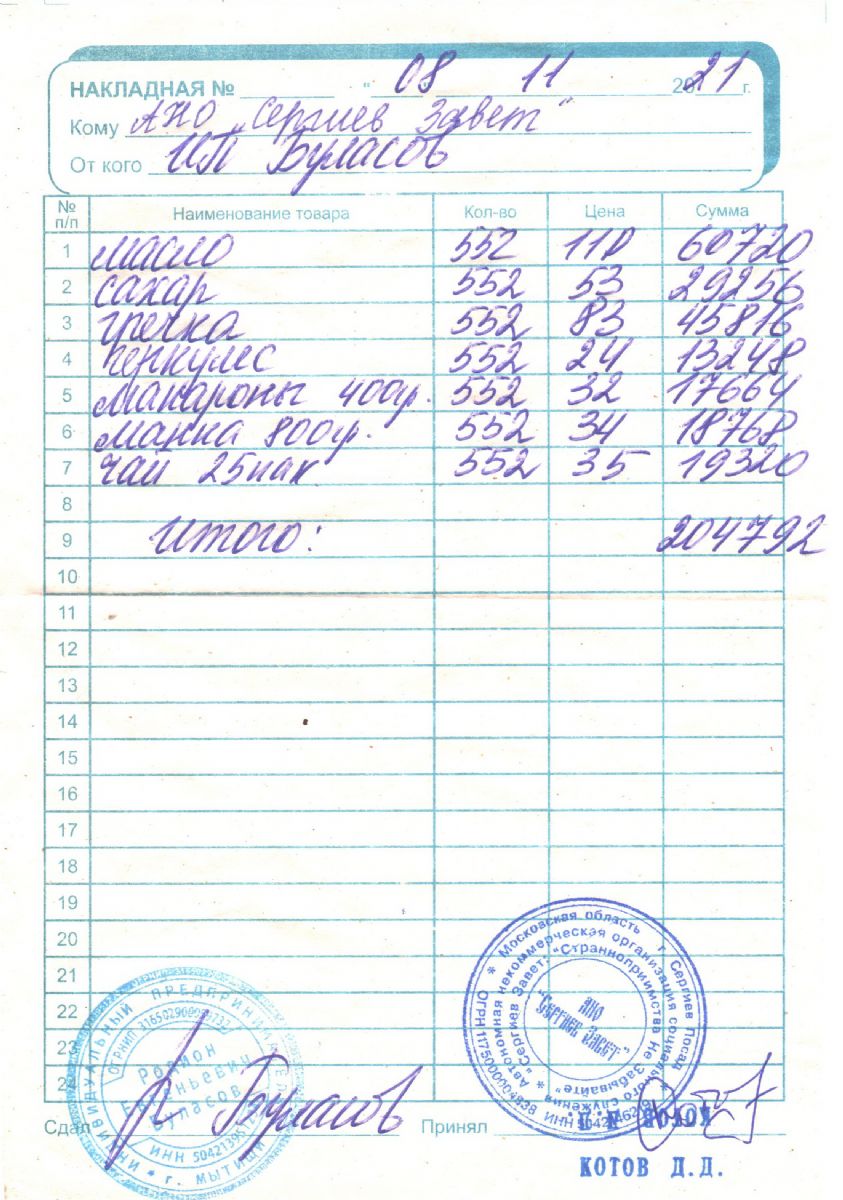 НАКЛАДНАЯ № " 08 11 2021 г.
Кому АНО "Сергиев Завет"
От кого ИП Буласов
№ п/п Наименование товара Кол-во Цена Сумма
1 масло 552 110 60720
2 сахар 552 53 29256
3 гречка 552 83 45816
4 геркулес 552 24 13248
5 макароны 400гр. 552 32 17664
6 манка 800гр. 552 34 18768
7 чай 25пак 552 35 19320
8
9 Итого: 204792
10
11
12
13
14
15
16
17
18
19
20
21
22
23
24
ИНДИВИДУАЛЬНЫЙ ПРЕДПРИНИМАТЕЛЬ
ОГРНИП
Родион
Евгеньевич
Буласов
ИНН
* г. МЫТИЩИ
* Московская область г. Сергиев Посад *
Автономная некоммерческая организация социального служения
"Сергиев Завет: "Странноприимства Не Забывайте" *
АНО
"Сергиев Завет"
ОГРН ИНН
Сдал Буласов Принял
КОТОВ Д.Д.